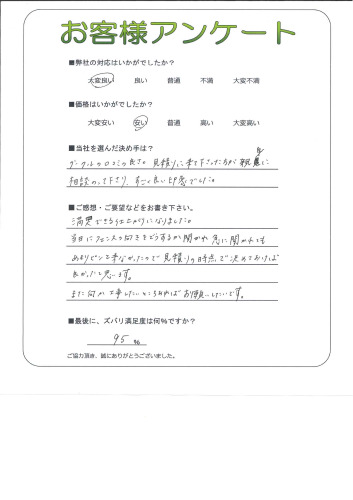 お客様アンケート
■弊社の対応はいかがでしたか？
大変良い 良い 普通 不満 大変不満
■価格はいかがでしたか？
大変安い 安い 普通 高い 大変高い
■当社を選んだ決め手は？
グーグルの口コミの良さ。見積りに来て下さった方が親身に
相談のって下さり、すごく良い印象でした。
■ご感想・ご要望などをお書き下さい。
満足できる仕上がりになりました。
当日にフェンスの向きをどうするか聞かれ 急に聞かれても
あまりピンと来なかったので見積りの時点で決めておけば
良かったと思います。
また何か工事したいところあればお願いしたいです。
■最後に、ズバリ満足度は何％ですか？
95 ％
ご協力頂き、誠にありがとうございました。